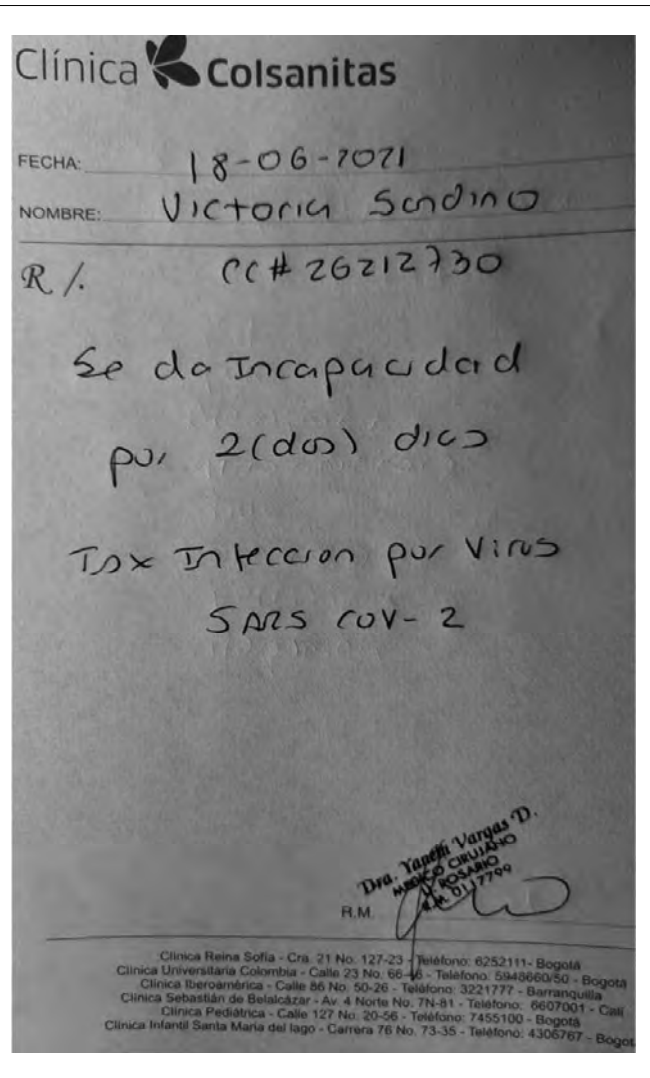 Clínica Colsanitas
FECHA: 18-06-2021
NOMBRE: Victoria Sandino
R/. CC# 26212730
Se da Incapacidad
por 2(dos) dias
IDx Infeccion por Virus
SARS COV-2
Dra. Yaneth Vargas D.
MEDICO CIRUJANO
U. ROSARIO
R.M. 0117799
R.M.
Clínica Reina Sofía - Cra. 21 No. 127-23 - Teléfono: 6252111- Bogotá
Clínica Universitaria Colombia - Calle 23 No. 66-46 - Teléfono: 5948660/50 - Bogotá
Clínica Iberoamérica - Calle 86 No. 50-26 - Teléfono: 3221777 - Barranquilla
Clínica Sebastián de Belalcázar - Av. 4 Norte No. 7N-81 - Teléfono: 6607001 - Cali
Clínica Pediátrica - Calle 127 No. 20-56 - Teléfono: 7455100 - Bogotá
Clínica Infantil Santa María del lago - Carrera 76 No. 73-35 - Teléfono: 4306767 - Bogot